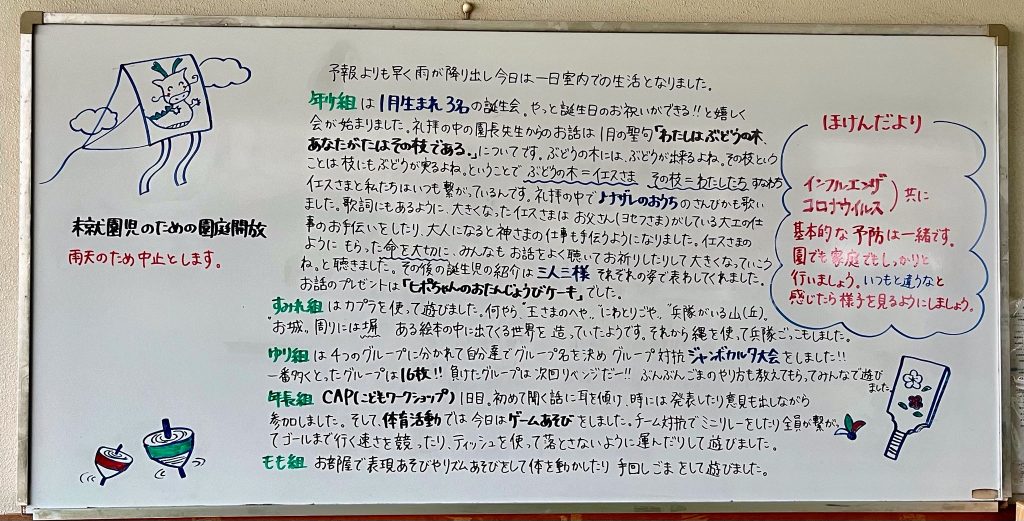 予報よりも早く雨が降り出し今日は一日室内での生活となりました。
年少組は1月生まれ3名の誕生会。やっと誕生日のお祝いができる!!と嬉しく
会が始まりました。礼拝の中の園長先生からのお話は1月の聖句「わたしはぶどうの木、
あなたがたはその枝である。」についてです。ぶどうの木には、ぶどうが出来るよね。その枝という
ことは枝にもぶどうが実るよね。ということで ぶどうの木=イエスさま その枝=わたしたち すなわち
イエスさまと私たちはいつも繋がっているんです。礼拝の中でナザレのおうちのさんびかも歌い
ました。歌詞にもあるように、大きくなったイエスさまは お父さん(ヨセフさま)がしている大工の仕
事のお手伝いをしたり、大人になると神さまの仕事も手伝うようになりました。イエスさまの
ように もらった命を大切に、みんなも お話をよく聴いてお祈りしたりして大きくなっていこう
ね。と聴きました。その後の誕生児の紹介は三人三様 それぞれの姿で表わしてくれました。
お話のプレゼントは「ヒポちゃんのおたんじょうびケーキ」でした。
すみれ組はカプラを使って遊びました。何やら、"王さまのへや"、"にわとりごや"、"兵隊がいる山(丘)。
"お城。周りには堀 ある絵本の中に出てくる世界を造っていたようです。それから縄を使って兵隊ごっこもしました。
ゆり組は4つのグループに分かれて自分達でグループ名を決め グループ対抗ジャンボカルタ大会をしました!!
一番多くとったグループは16枚!! 負けたグループは次回リベンジだー!! ぶんぶんごまのやり方も教えてもらってみんなで遊び
ました
年長組 CAP(こどもワークショップ)1日目。初めて聞く話に耳を傾け、時には発表したり意見も出しながら
参加しました。そして、体育活動では今日はゲームあそびをしました。チーム対抗でミニリレーをしたり全員が繋がっ
てゴールまで行く速さを競ったり、ティッシュを使って落とさないように運んだりして遊びました。
もも組 お部屋で表現あそびやリズムあそびをして体を動かしたり 手回しごまをして遊びました。
未就園児のための園庭開放
雨天のため中止とします。
ほけんだより
インフルエンザ
コロナウイルス)共に
基本的な予防は一緒です。
園でも家庭でもしっかりと
行いましょう。いつもと違うなと
感じたら様子を見るようにしましょう。